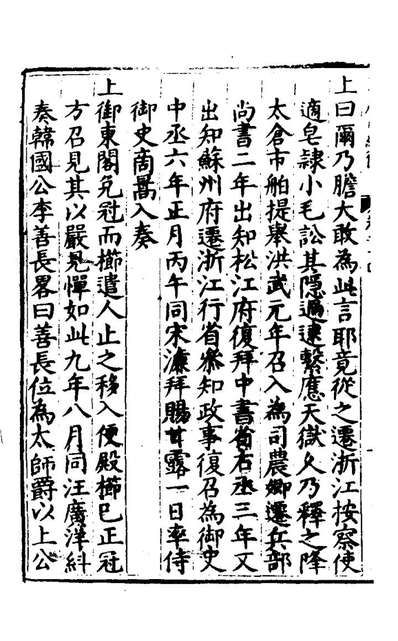 上曰爾乃膽大敢為此言耶竟從之遷浙江按察使
適皂隸小毛訟其隱逼逮繫應天獄久乃釋之降
太倉市舶提舉洪武元年召入為司農卿遷兵部
尚書二年出知松江府復拜中書省右丞三年又
出知蘇州府遷浙江行省叅知政事復召為御史
中丞六年正月丙午同宋濂拜賜甘露一日率侍
御史商暠入奏
上御東閣免冠而櫛遣人止之移入便殿櫛巳正冠
方召見其以嚴見憚如此九年八月同汪廣洋糾
奏韓國公李善長畧曰善長位為太師爵以上公